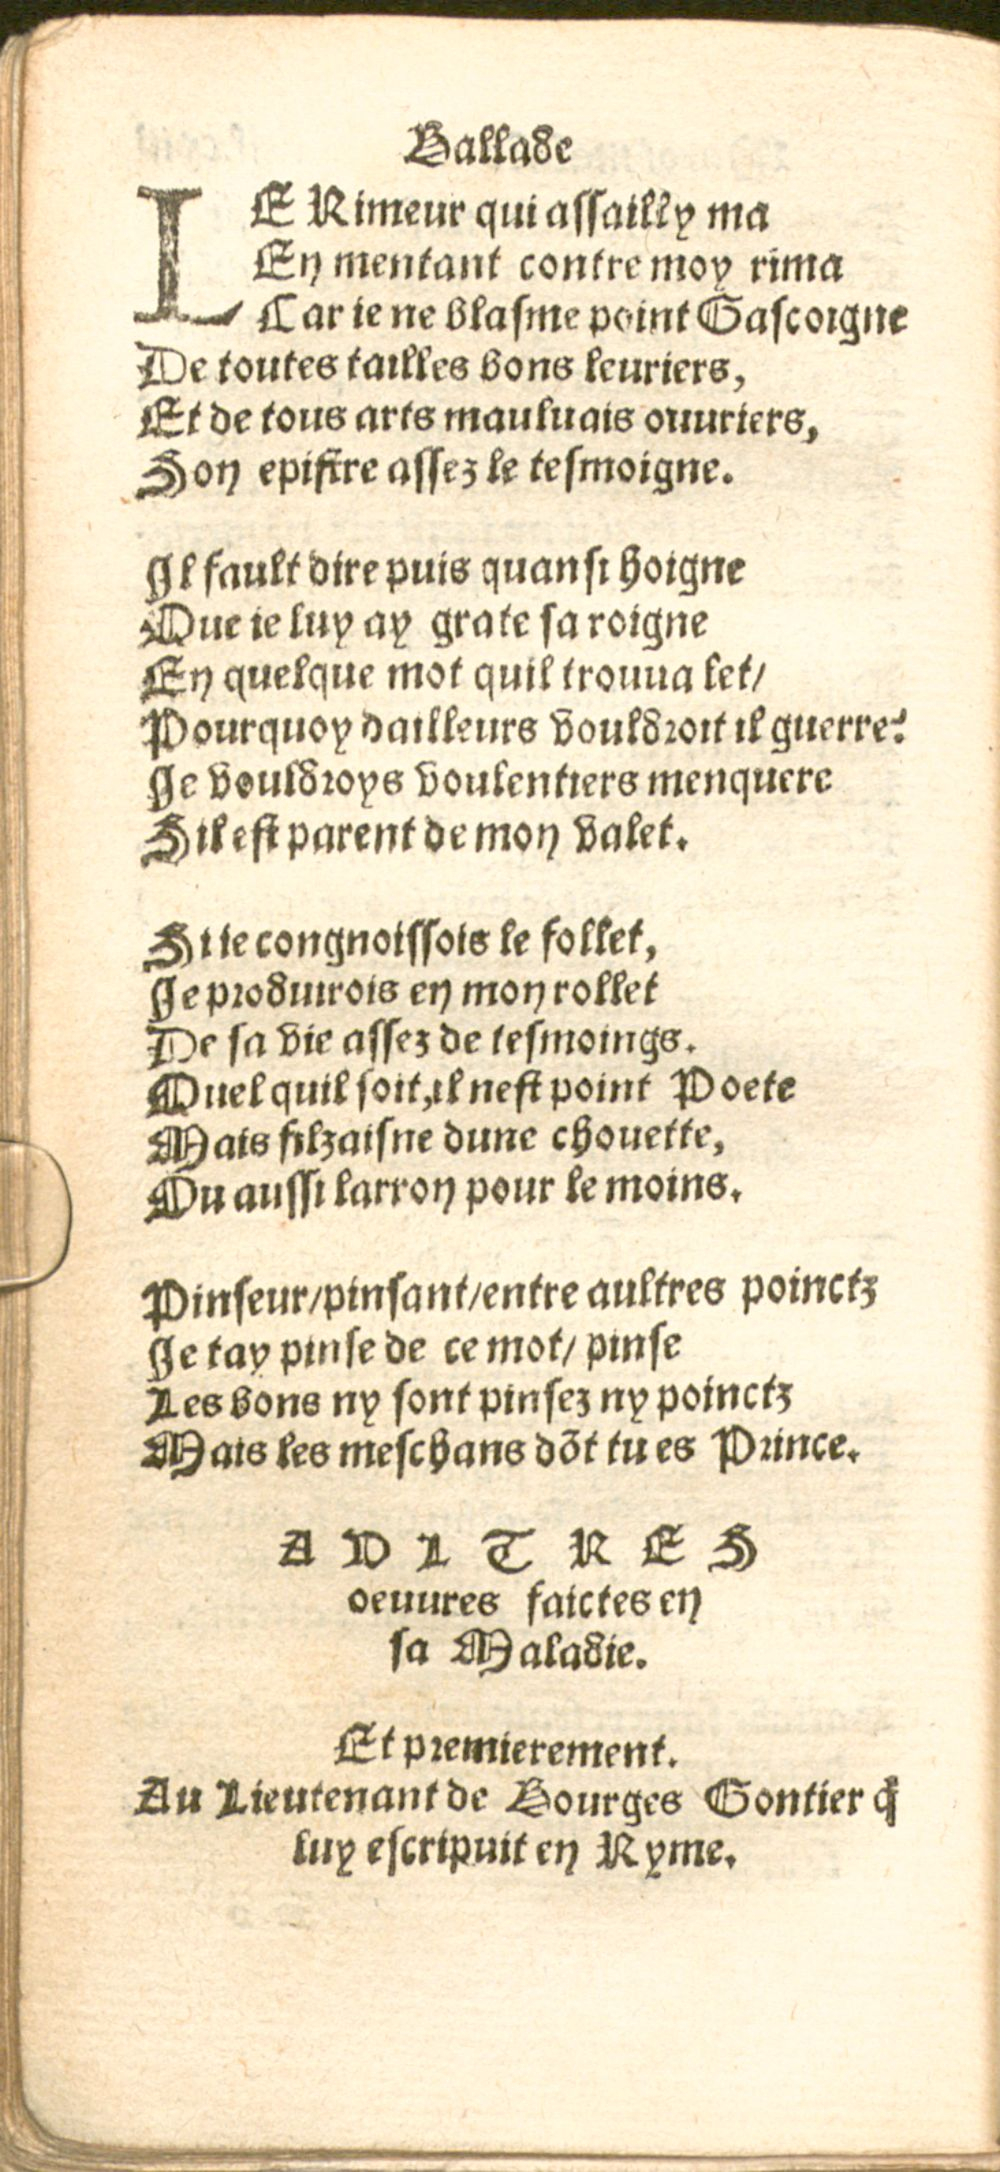 Ballade
LE Rimeur qui assailly ma
En mentant contre moy rima
Car ie ne blasme point Gascoigne
De toutes tailles bons leuriers,
Et de tous arts mauluais ouuriers,
Son epistre assez le tesmoigne.
Il fault dire puis quansi hoigne
Que ie luy ay grate sa roigne
En quelque mot quil trouua let/
Pourquoy dailleurs vouldroit il guerre?
Je vouldroys voulentiers menquere
Sil est parent de mon valet.
Si ie congnoissois le follet,
Je produirois en mon rollet
De sa vie assez de tesmoings.
Quel quil soit, il nest point Poete
Mais filzaisne dune chouette,
Ou aussi larron pour le moins.
Pinseur/pinsant/entre aultres poinctz
Je tay pinse de ce mot/ pinse
Les bons ny sont pinsez ny poinctz
Mais les meschans dõt tu es Prince.
A V L T R E S
oeuures faictes en
sa Maladie.
Et premierement.
Au Lieutenant de Bourges Gontier q̃
luy escripuit en Ryme.